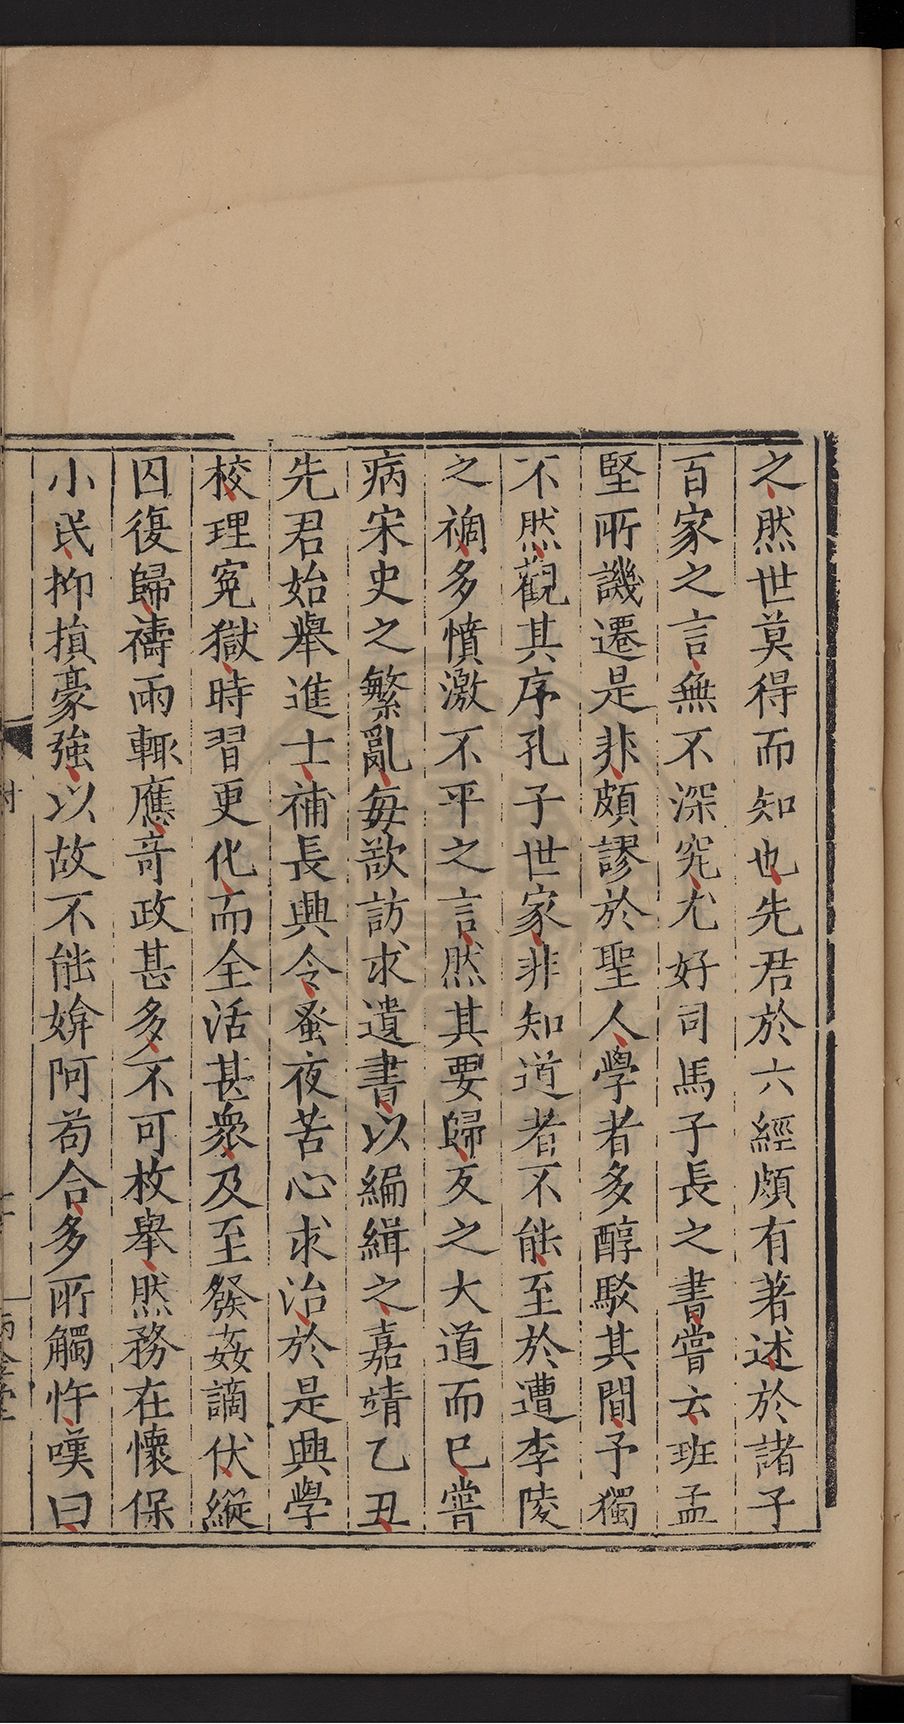 之然世莫得而知也先君於六經頗有著述於諸子
百家之言無不深究尤好司馬子長之書嘗云班孟
堅所譏遷是非頗謬於聖人學者多醇駁其間予獨
不然觀其序孔子世家非知道者不能至於遭李陵
之禍多憤激不平之言然其要歸反之大道而已嘗
病宋史之繁亂每欲訪求遺書以編緝之嘉靖乙丑
先君始舉進士補長興令蚤夜苦心求治於是興學
校理冤獄時習更化而全活甚衆及至發姦謫伏縱
囚復歸禱雨輒應竒政甚多不可枚舉然務在懷保
小民抑搷豪強以故不能媕阿苟合多所觸忤嘆曰